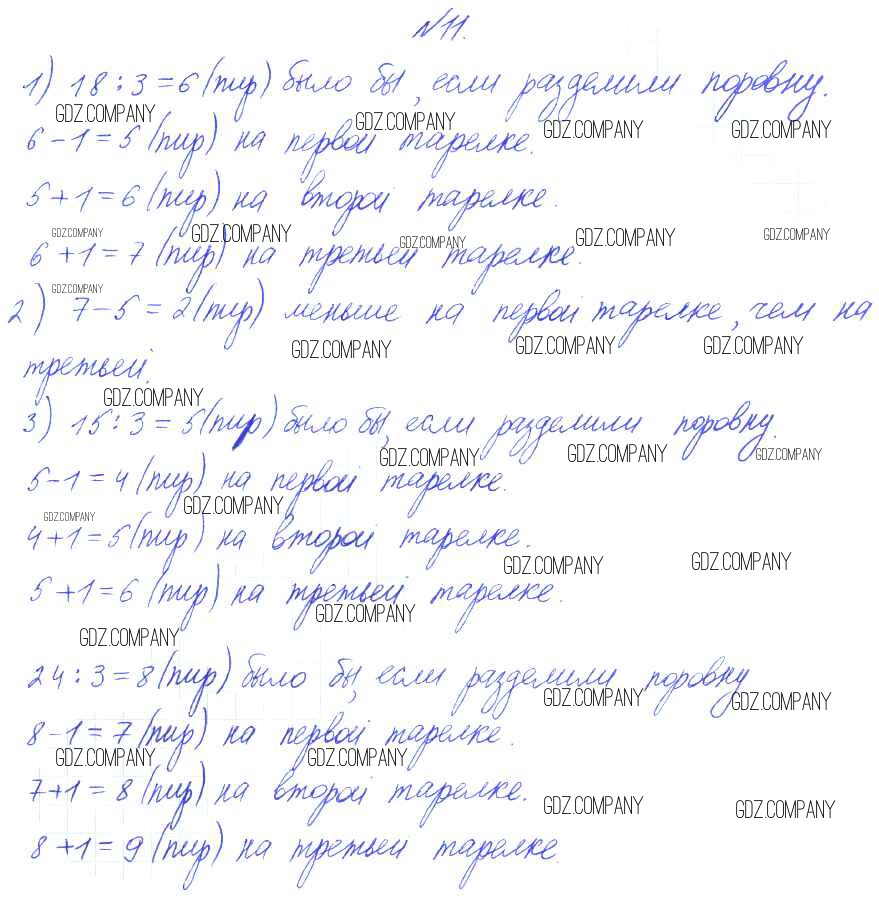 №11.
1) 18 : 3 = 6 (пир) было бы, если разделили поровну.
GDZ.COMPANY GDZ.COMPANY GDZ.COMPANY GDZ.COMPANY
6 - 1 = 5 (пир) на первой тарелке.
5 + 1 = 6 (пир) на второй тарелке.
GDZ.COMPANY GDZ.COMPANY GDZ.COMPANY GDZ.COMPANY GDZ.COMPANY
6 + 1 = 7 (пир) на третьей тарелке.
GDZ.COMPANY
2) 7 - 5 = 2 (пир) меньше на первой тарелке, чем на
GDZ.COMPANY GDZ.COMPANY GDZ.COMPANY
третьей.
GDZ.COMPANY
3) 15 : 3 = 5 (пир) было бы, если разделили поровну.
GDZ.COMPANY GDZ.COMPANY GDZ.COMPANY
5 - 1 = 4 (пир) на первой тарелке.
GDZ.COMPANY GDZ.COMPANY
4 + 1 = 5 (пир) на второй тарелке.
GDZ.COMPANY GDZ.COMPANY
5 + 1 = 6 (пир) на третьей тарелке.
GDZ.COMPANY GDZ.COMPANY
24 : 3 = 8 (пир) было бы, если разделили поровну
GDZ.COMPANY GDZ.COMPANY
8 - 1 = 7 (пир) на первой тарелке.
GDZ.COMPANY GDZ.COMPANY
7 + 1 = 8 (пир) на второй тарелке.
GDZ.COMPANY GDZ.COMPANY
8 + 1 = 9 (пир) на третьей тарелке.